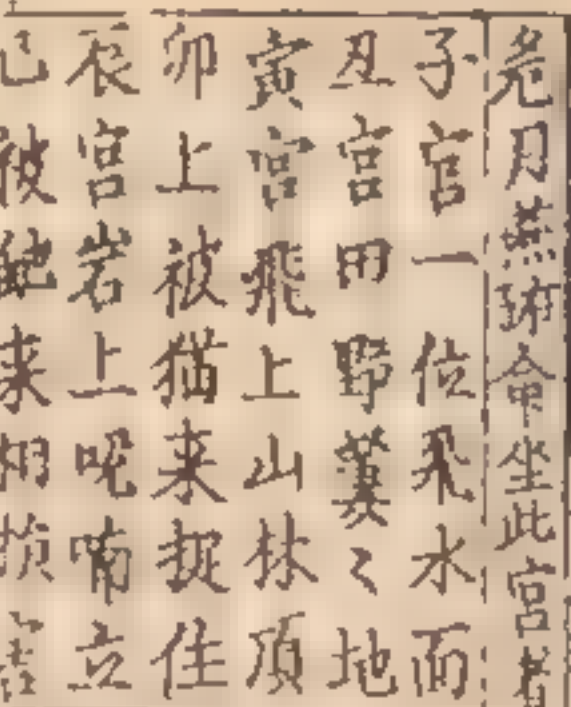 危月燕瑚命坐此宮者
子宮一位飛水面
丑宮田野糞〻地
寅宮飛上山林頂
卯上被猫来捉住
辰宮岩上呢喃立
巳被蛇来相